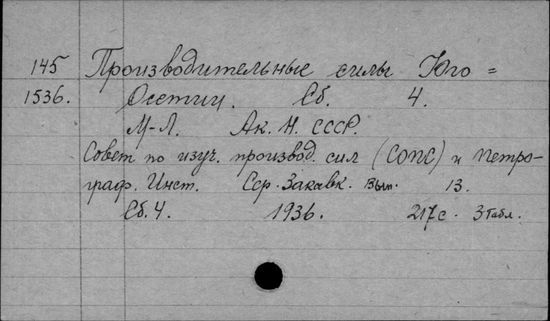 145 Производительные силы Юго=
1536. Осетии. Сб. 4.
М-Л. Ак. Н. СССР.
Совет по изуч. производ. сил (СОПС) и Петро-
граф. Инст. Сер. Закавк. Вып. 13.
Сб. 4. 1936. 217 с. 3 табл.